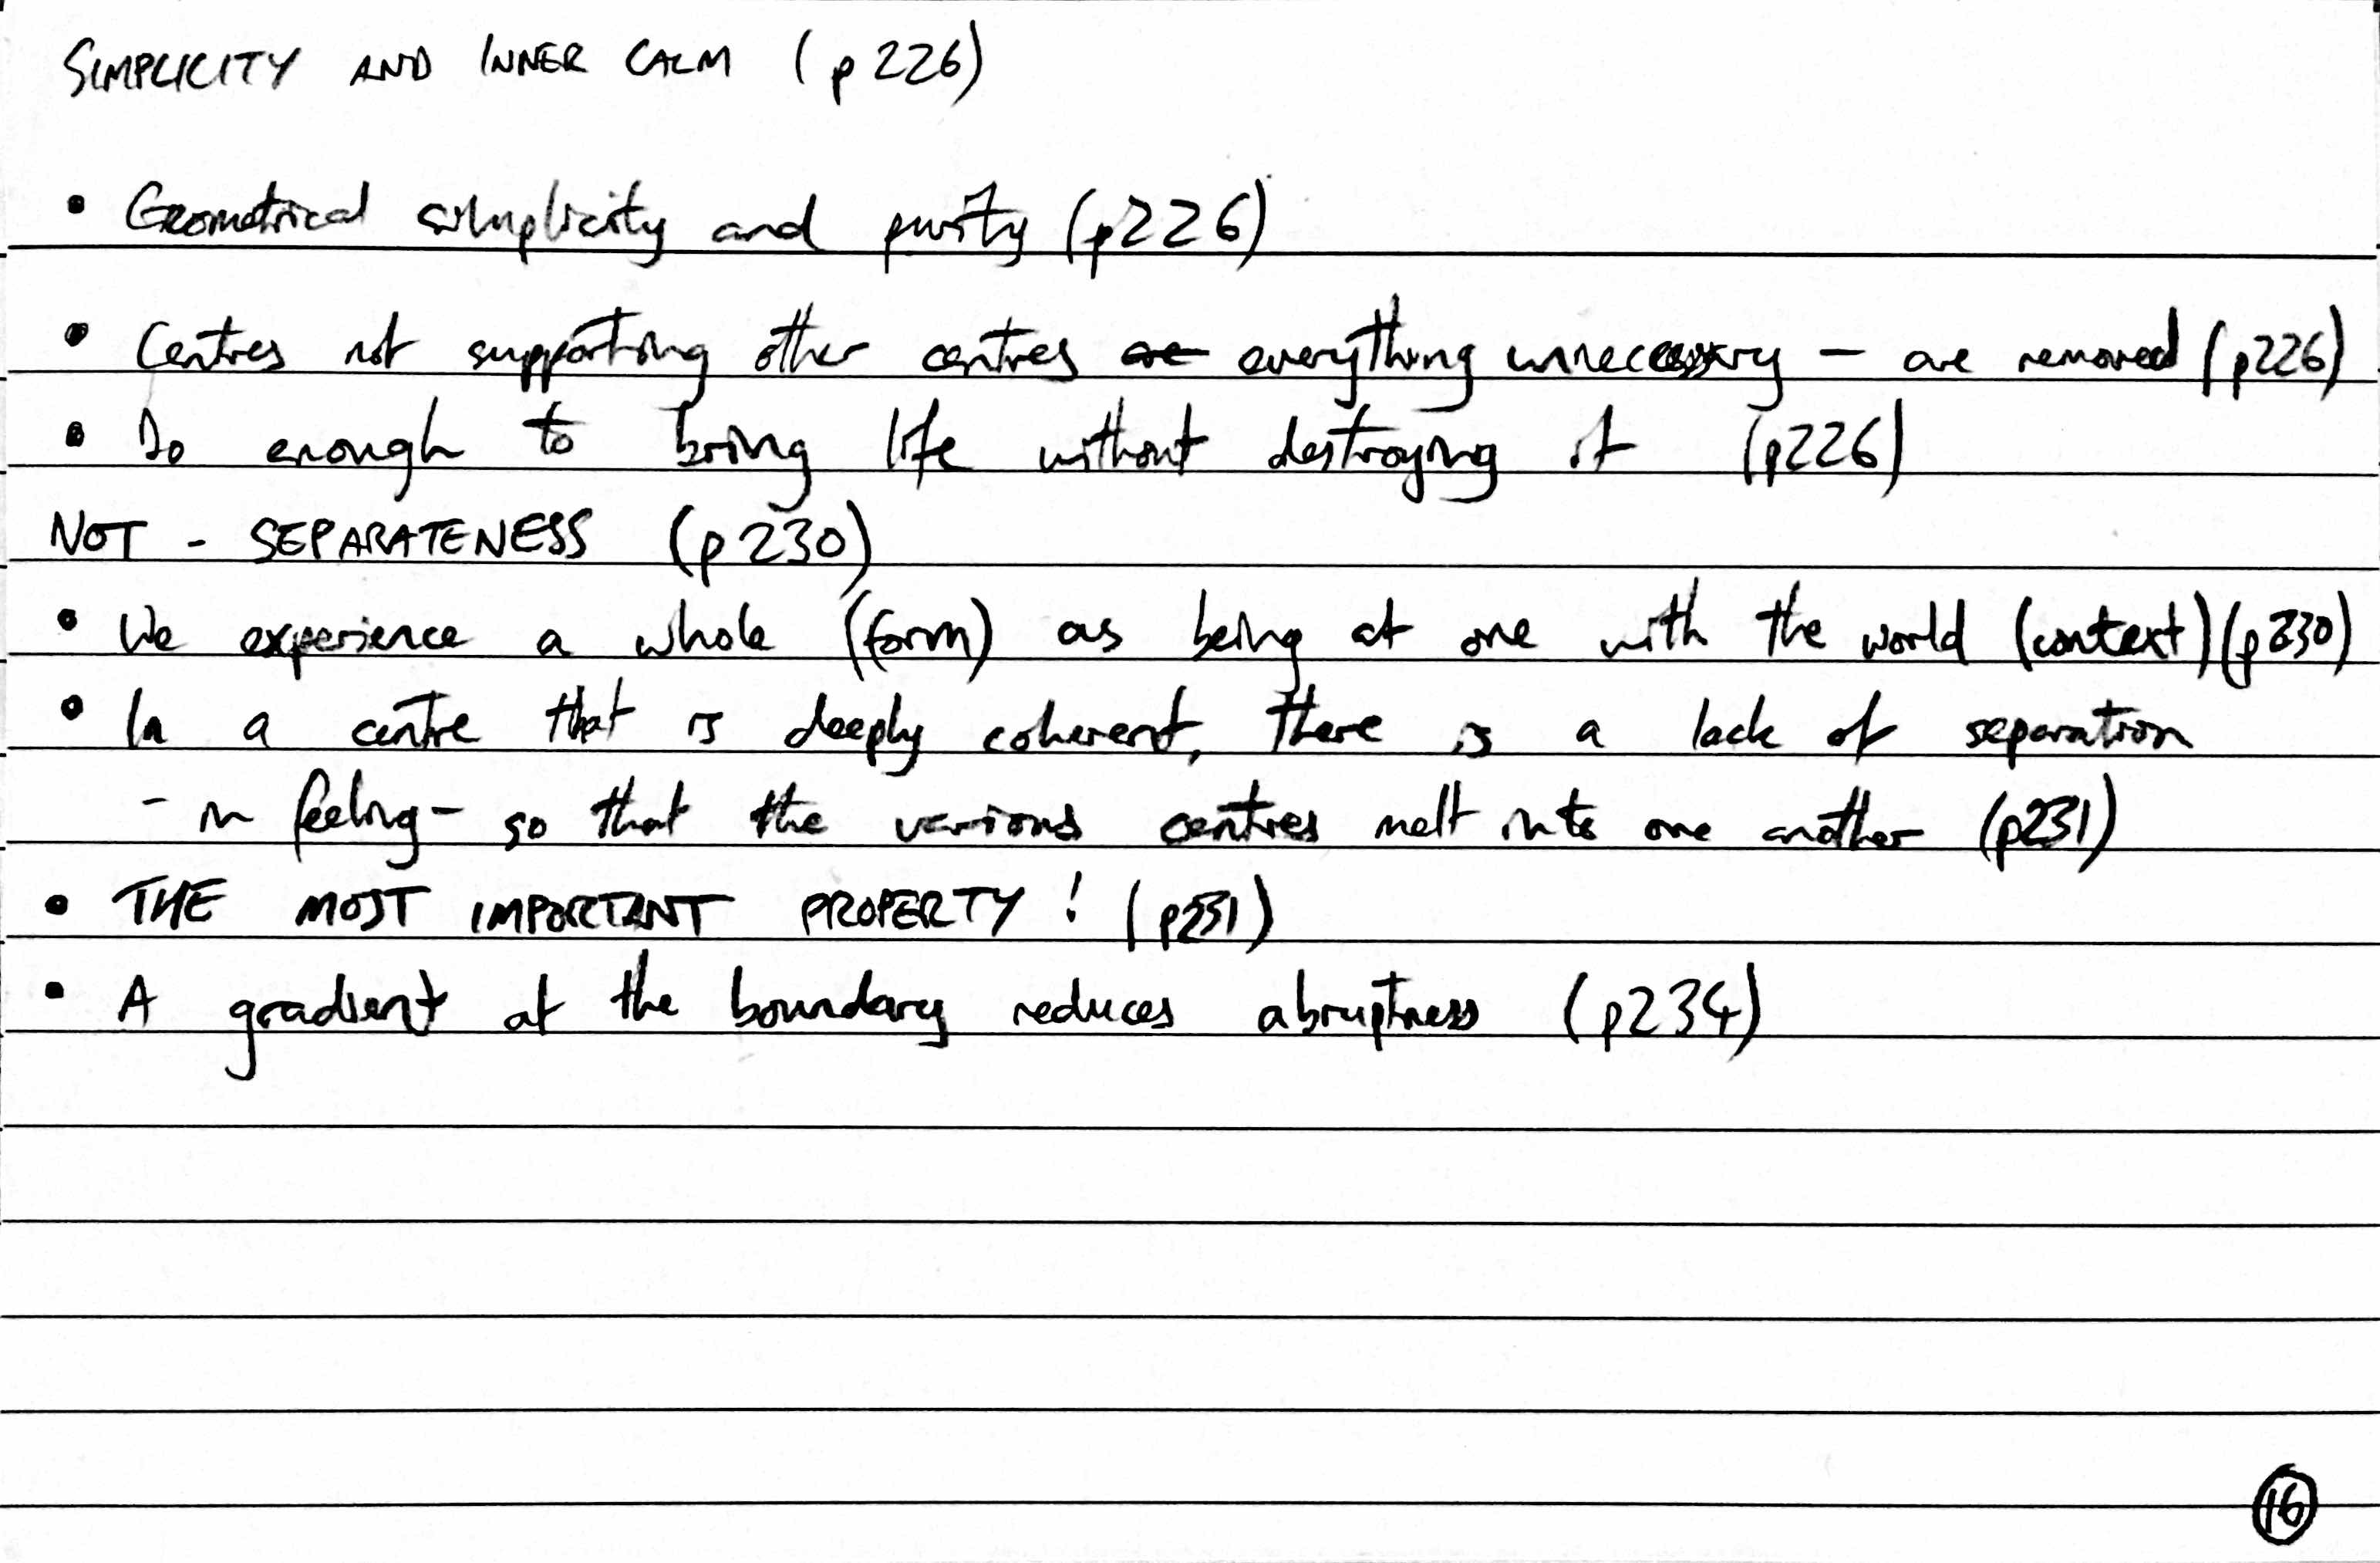 SIMPLICITY AND INNER CALM (p226)
• Geometrical simplicity and purity (p226)
• Centres not supporting other centres are everything unnecessary – are removed (p226)
• Do enough to bring life without destroying it (p226)
NOT - SEPARATENESS (p230)
• We experience a whole (form) as being at one with the world (context) (p230)
• In a centre that is deeply coherent, there is a lack of separation
- in feeling - so that the various centres melt into one another (p231)
• THE MOST IMPORTANT PROPERTY! (p231)
• A gradient at the boundary reduces abruptness (p234)
16